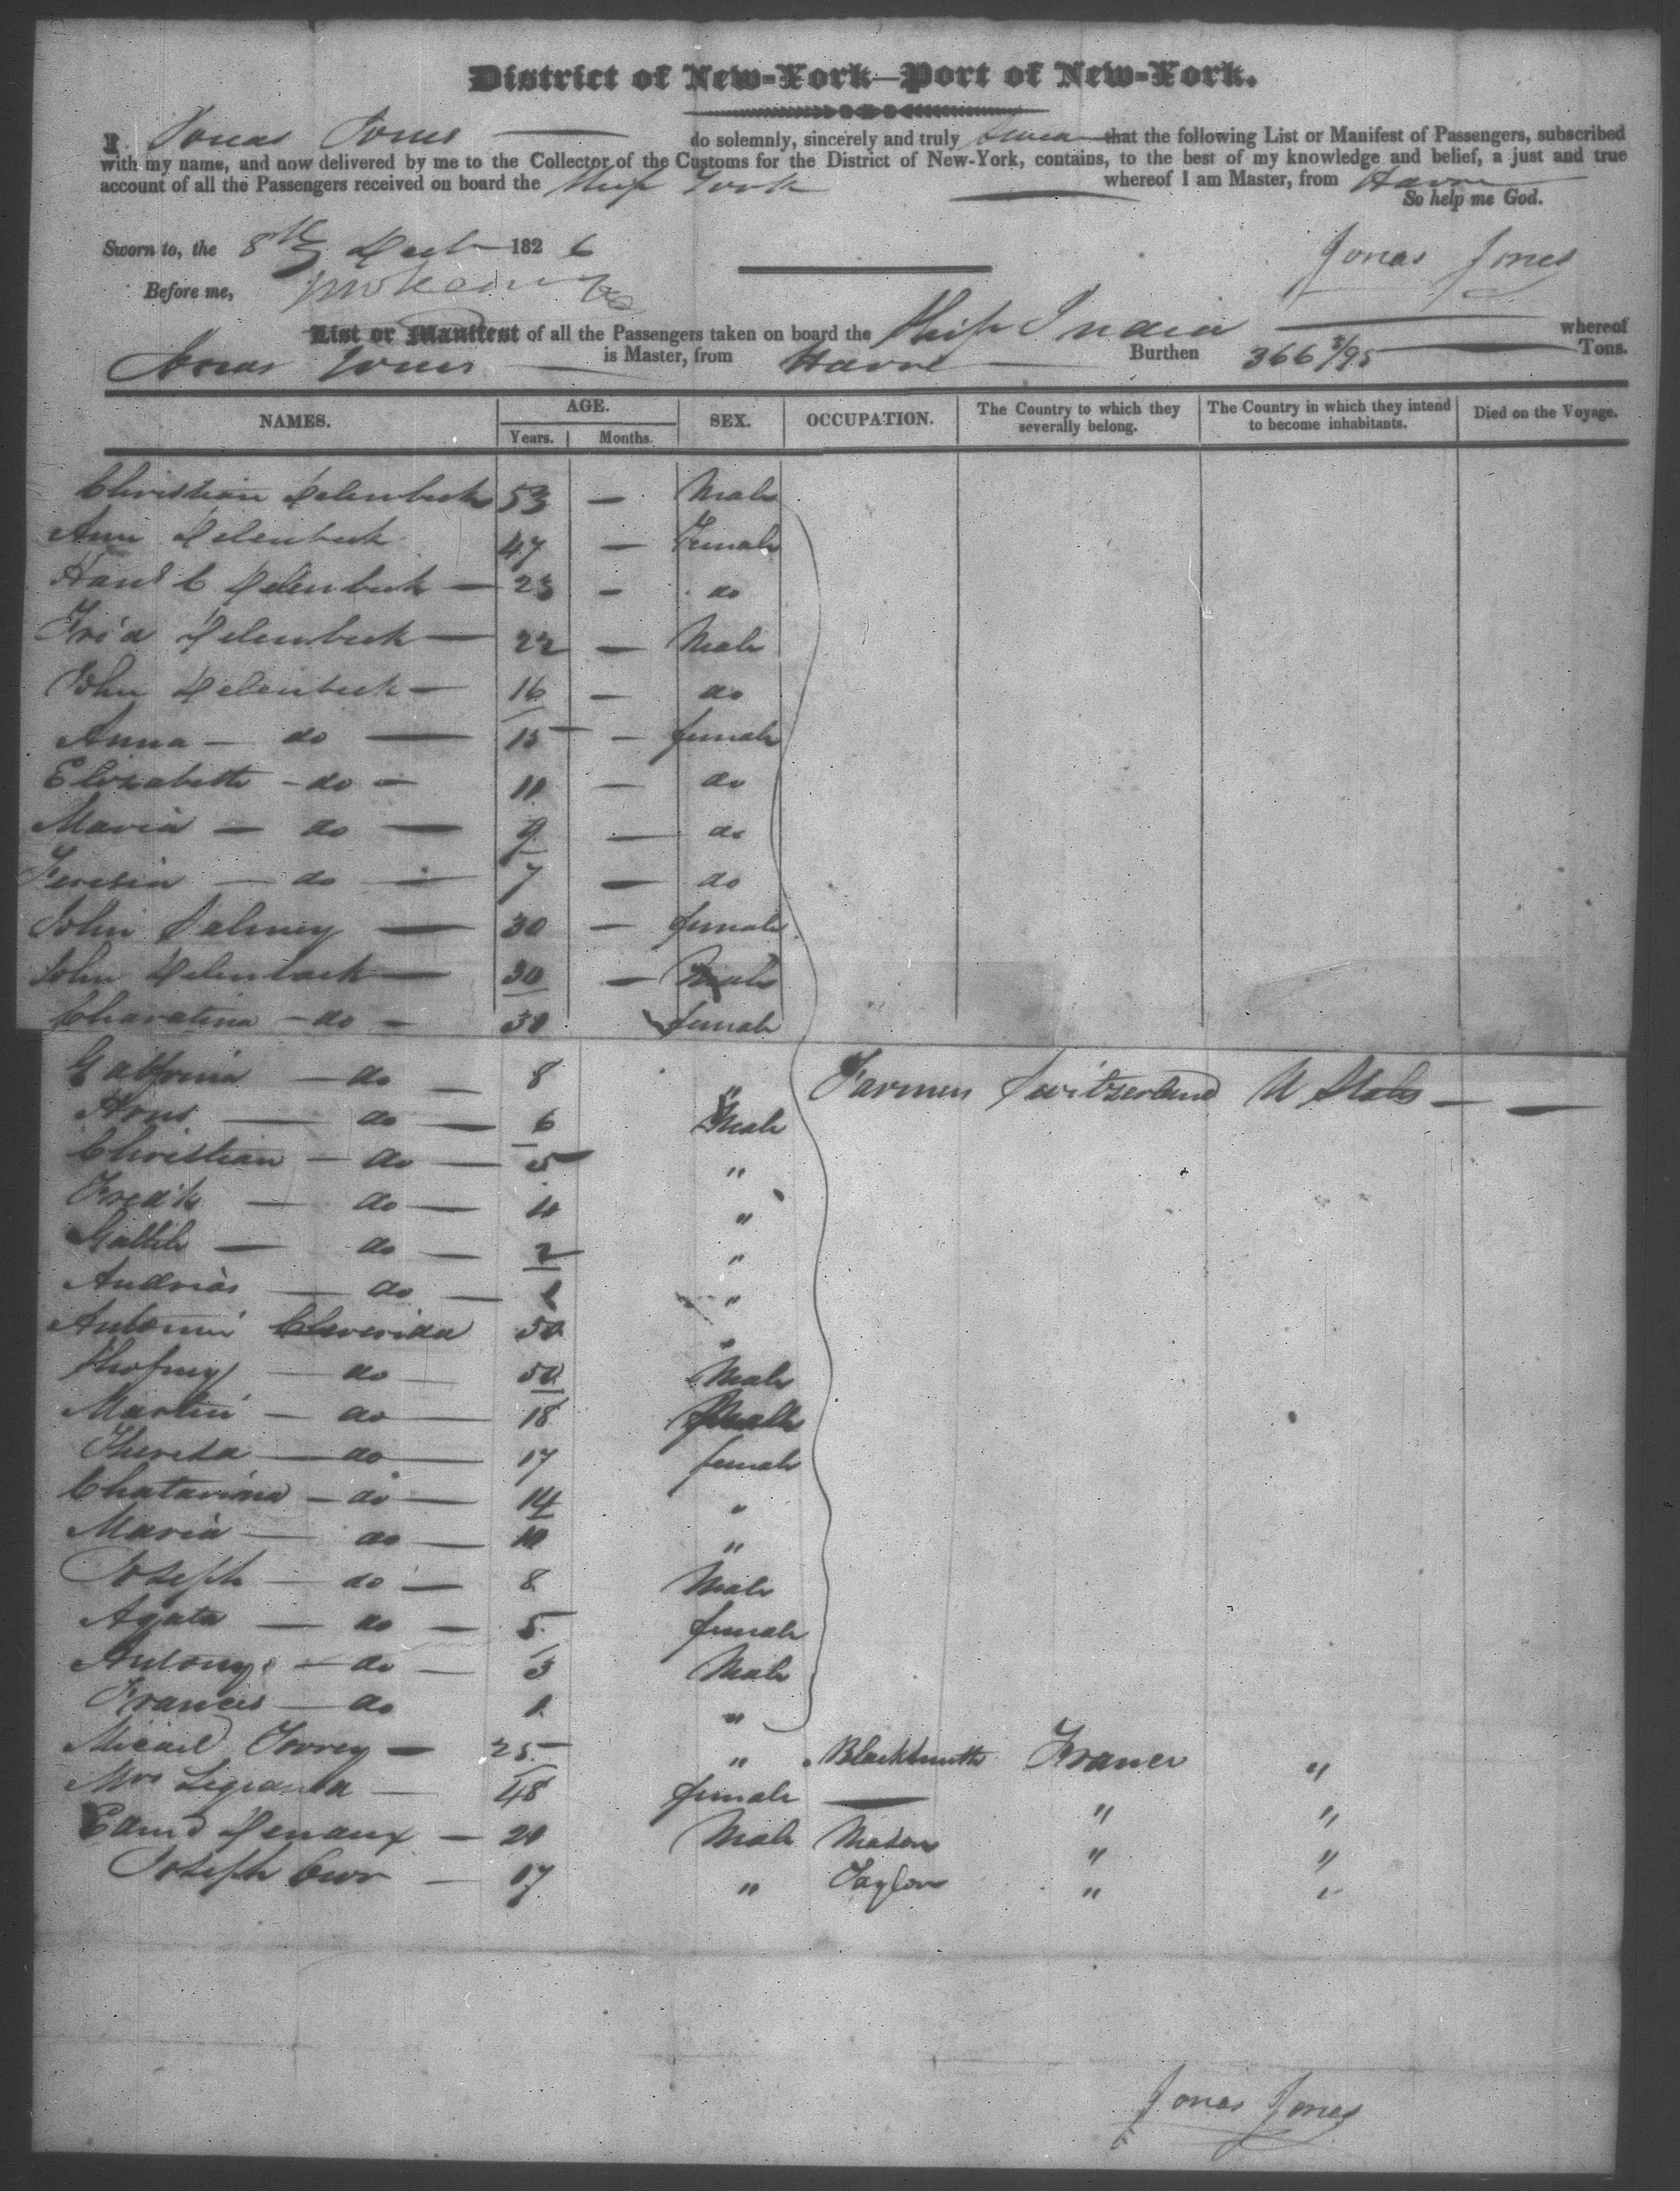 District of New-York—Port of New-York.
I, Jonas Jones do solemnly, sincerely and truly swear that the following List or Manifest of Passengers, subscribed
with my name, and now delivered by me to the Collector of the Customs for the District of New-York, contains, to the best of my knowledge and belief, a just and true
account of all the Passengers received on board the Ship York whereof I am Master, from Havre
So help me God.
Sworn to, the 8th 182 6
Jonas Jones
Before me,
List or Manifest of all the Passengers taken on board the Ship India whereof
Jonas Jones is Master, from Havre Burthen 366 5/95 Tons.
NAMES. AGE. SEX. OCCUPATION. The Country to which they severally belong. The Country in which they intend to become inhabitants. Died on the Voyage.
Years. Months.
Christian Delenbach 53 — Male
Ann Delenbach 47 — Female
Hans C Delenbach — 23 — do
Fred Delenbach — 22 — Male
John Delenbach — 16 — do
Anna — do — 15 — female
Elizabeth - do - 11 — do
Maria — do — 9 — do
Teresia — do — 7 — do
John — 30 — female
John Delenbach — 30 — Male
Charatina - do - 30 female
— do — 8 "
— do — 6 Male
Christian — do — 5 "
Fredk — do — 4 "
Gallib — do — 2 "
Andrias — do — 1 "
Farmers Switzerland U States — —
Antonni 50 "
— do — 50 Male
Martin — do — 18
Theresa — do — 17 female
Chatarina — do — 14 "
Maria — do — 10 "
Joseph — do — 8 Male
Agata — do — 5 female
Antony — do — 3 Male
Francis — do 1 "
Micael Torrey — 25 " Blacksmith France "
Mrs — 48 female — " "
Edmd Denaux — 20 Male Mason " "
Joseph — 17 " Taylor " "
Jonas Jones